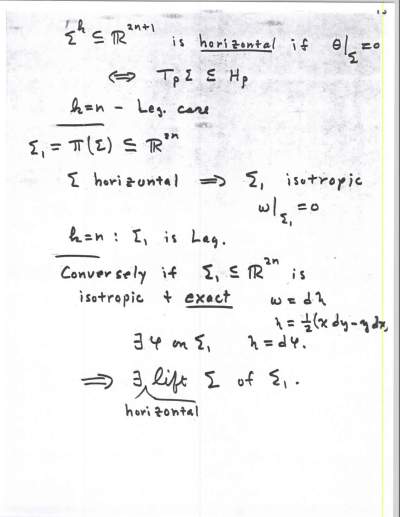 Σ^k ⊆ ℝ^{2n+1} is horizontal if θ|_Σ = 0
⟺ T_pΣ ⊆ H_p
k=n - Leg. case
Σ_1 = π(Σ) ⊆ ℝ^{2n}
Σ horizontal ⟹ Σ_1 isotropic
ω|_{Σ_1} = 0
k=n : Σ_1 is Lag.
Conversely if Σ_1 ⊆ ℝ^{2n} is
isotropic + exact ω = dλ
λ = ½(x dy - y dx)
∃ φ on Σ_1 λ = dφ.
⟹ ∃ lift Σ of Σ_1.
horizontal